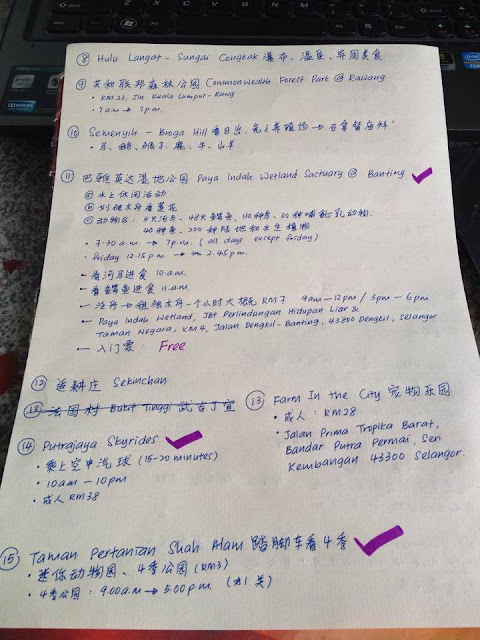 ⑧ Hulu Langat - Sungai Congkak 瀑布、温泉、异国美食
⑨ 共和联邦森林公园 Commonwealth Forest Park @ Rawang
• KM 23, Jln Kuala Lumpur - Rawg
• 7am → 7pm.
⑩ Semenyih - Broga Hill 看日出, 兔 养殖场 → 石拿督庙拜
• 马、鹅、猴子、鹿、牛、山羊
⑪ 巴雅英达湿地公园 Paya Indah Wetland Sactuary @ Banting
ⓐ 水上休闲活动
ⓑ 划独木舟看莲花
ⓒ 动物园: 5只河马、48只鳄鱼, 130种鸟、30种哺乳动物.
40种鱼、220种陆地和水生植物
• 7.30 a.m. → 7p.m. ( all days except friday)
• friday 12.15 p.m. → 2.45 p.m.
- 看河马进食 10 a.m.
- 看鳄鱼进食 11 a.m.
- 泛舟 → 租独木舟一个小时大概 RM7 9am - 12pm / 3pm - 6pm
- Paya Indah Wetland, JBt Perlindungan Hidupan Liar &
Taman Negara, KM4, Jalan Dengkil - Banting, 43800 Dengkil, Selangor
- 入门票: Free
⑫ 适耕庄 Sekinchan
⑬ 法国村 Bukit Tinggi 武吉丁宜
⑬ Farm In the City 宠物乐园
• 成人: RM28
• Jalan Prima Tropika Barat,
Bandar Putra Permai, Seri
Kembangan 43300 Selangor.
⑭ Putrajaya Skyrides
• 乘上空中汽球 (15-20 minutes)
• 10am - 10pm
• 成人 RM38
⑮ Taman Pertanian Shah Alam 踏脚车看4季
• 迷你动物园、4季公园 (RM3)
• 4季公园: 9.00 a.m → 5.00 p.m. (拜1 关)